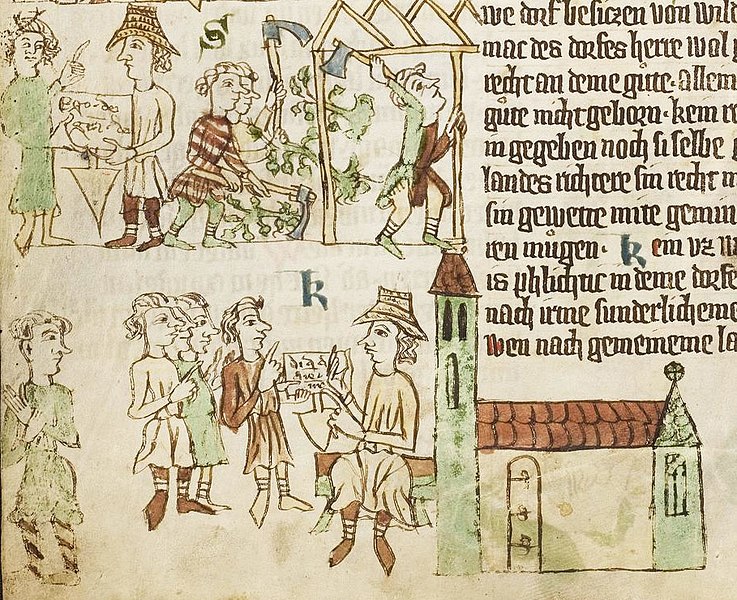 S
we dorf besiczen von wild
mac des dorfes herre wol
recht an deme gute. allem
gute nicht geborn. kem re
in gegeben noch si selbe
landes richtere sin recht
sin gewette mite gemin
ren mùgen. k em vz
k
is phlichtic in deme dorfe
nach irme sunderlicheme
wen nach gemeineme la
Ego dei